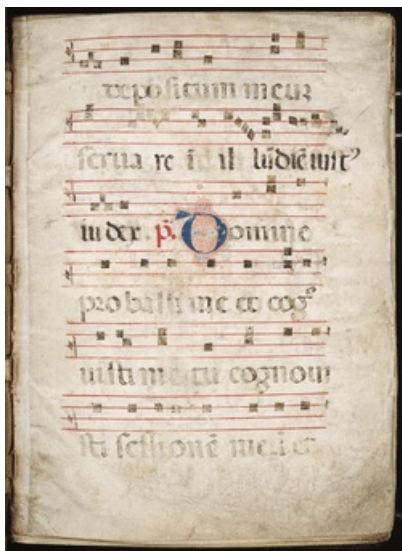 depositum meum
serua re in il lū diē iust9
iudex . p. Domine
probasti me et cog
uisti me tu cognoui
sti sessionē meā et